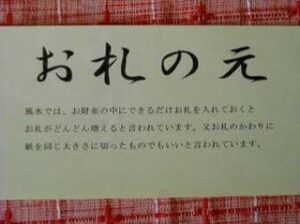 お札の元
風水では、お財布の中にできるだけお札を入れておくと
お札がどんどん増えると言われています。又お札のかわりに
紙を同じ大きさに切ったものでもいいと言われています。